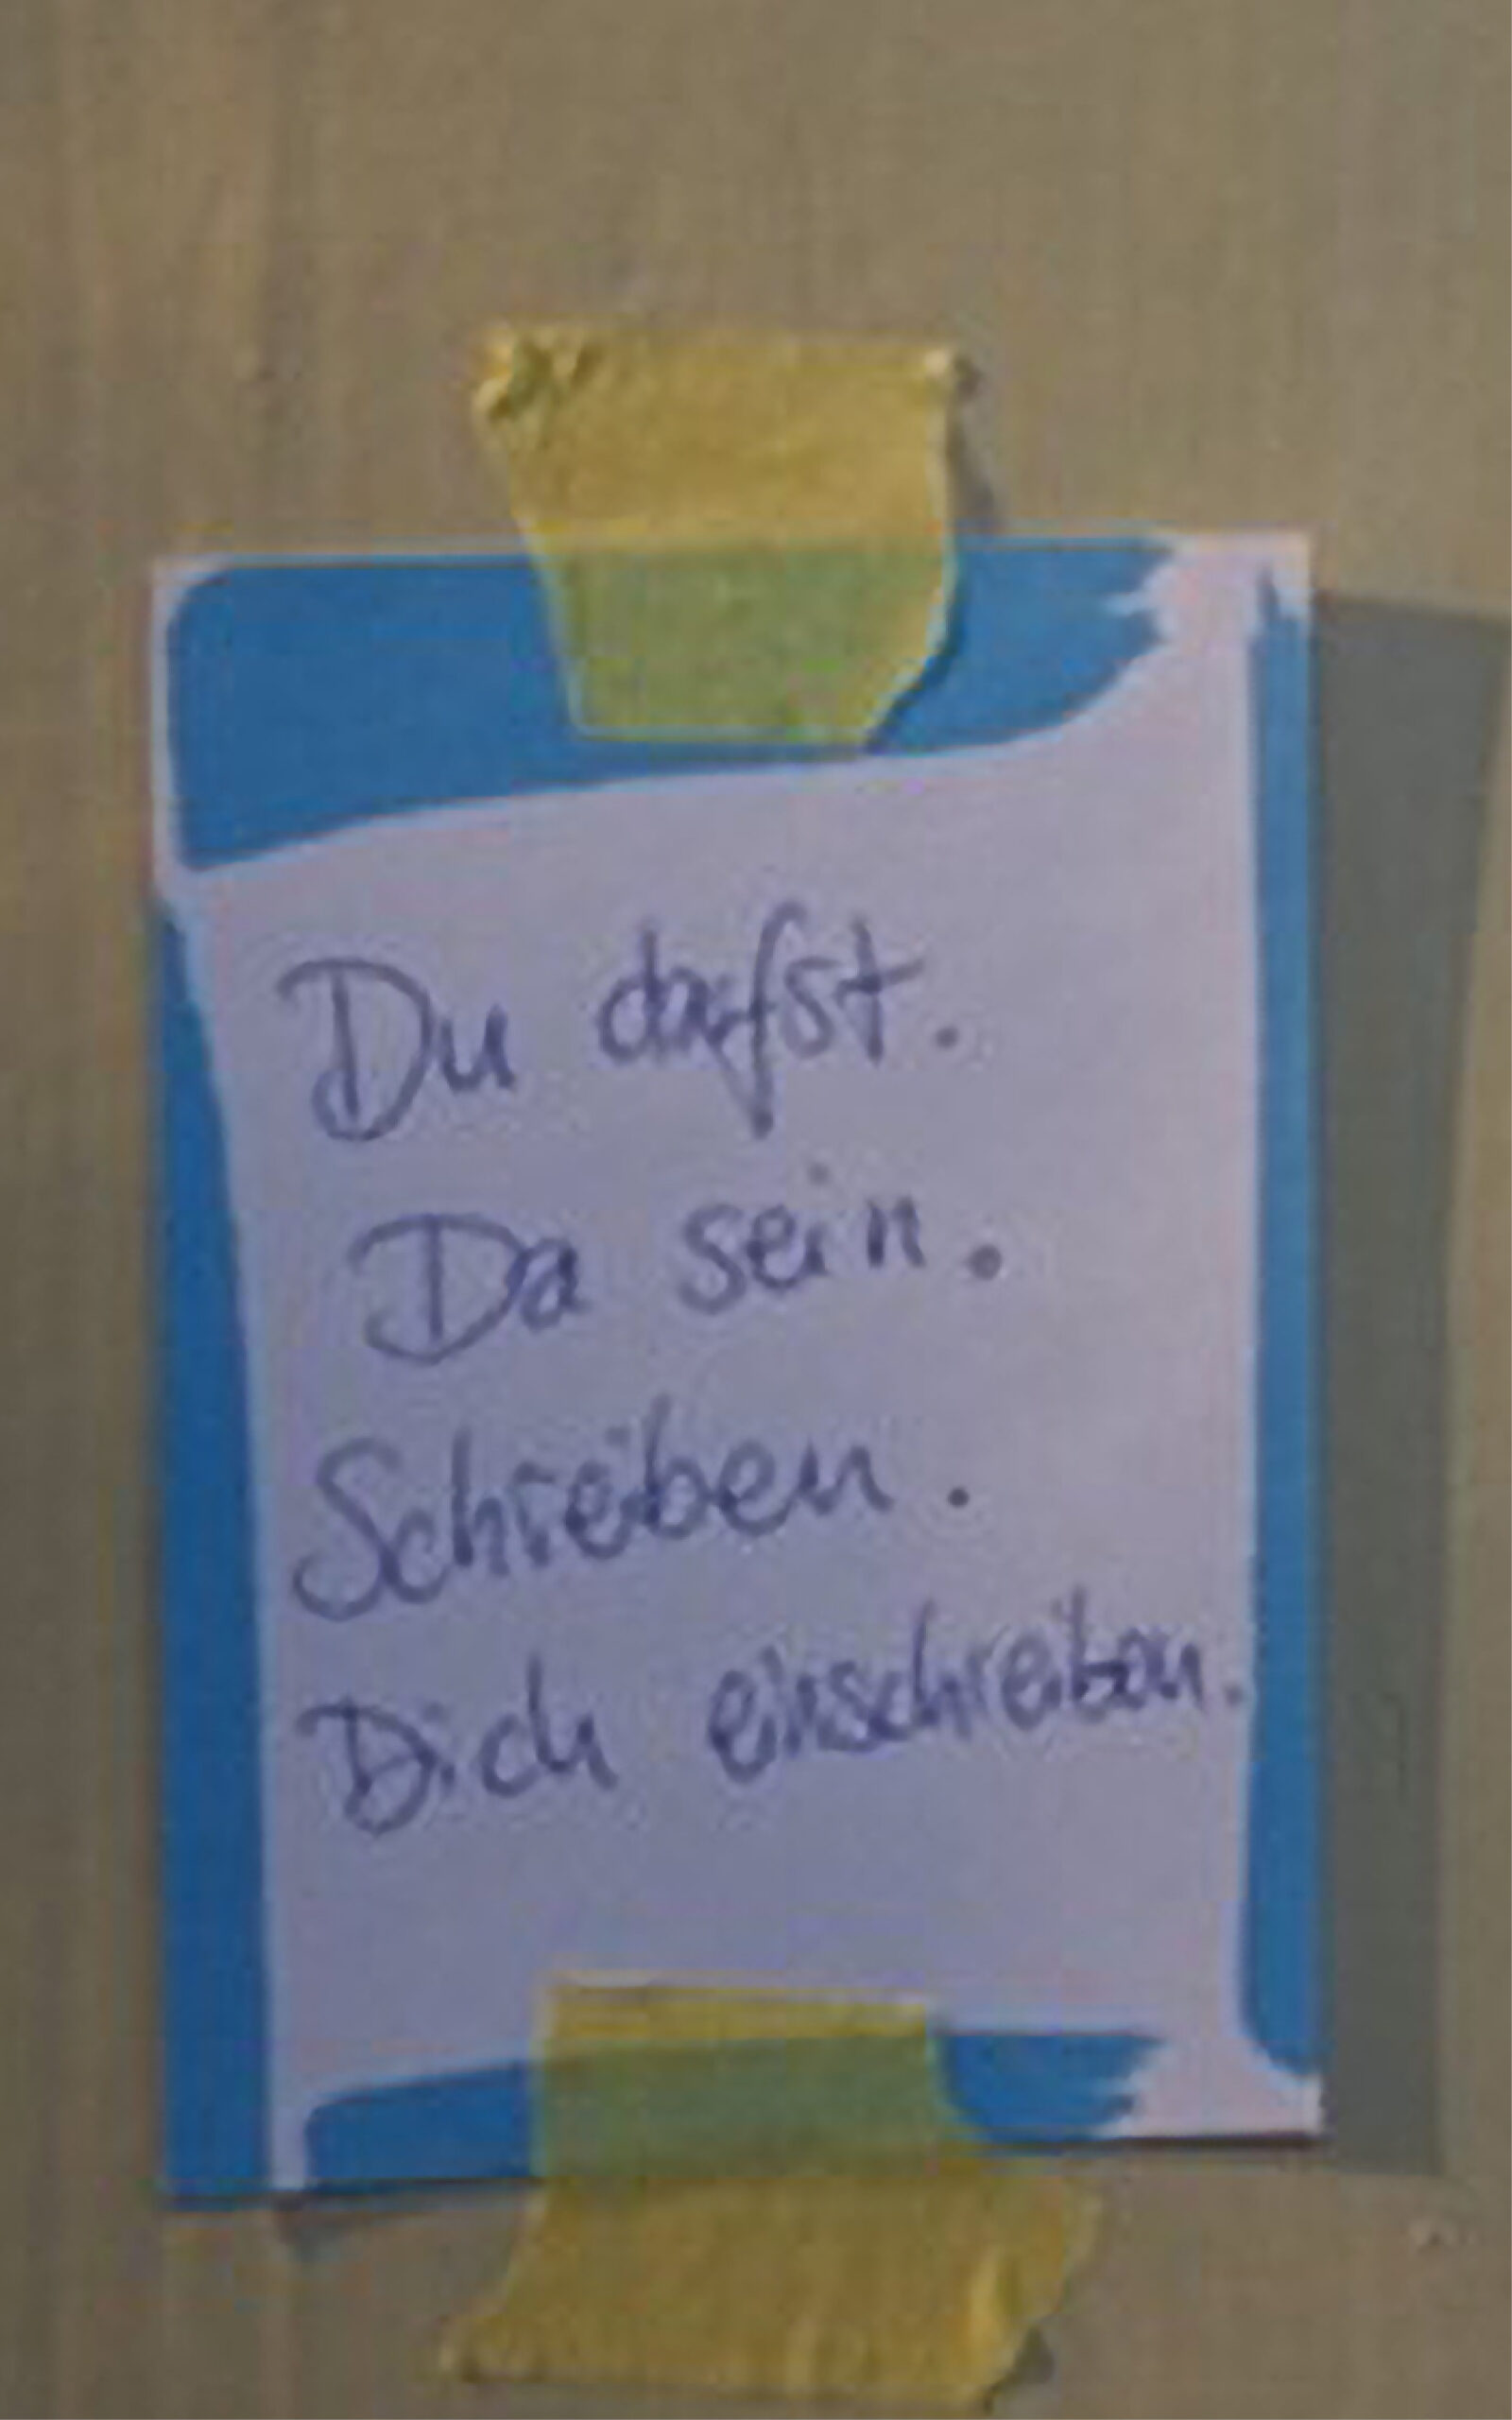 Du darfst.
Da sein.
Schreiben.
Dich einschreiben.